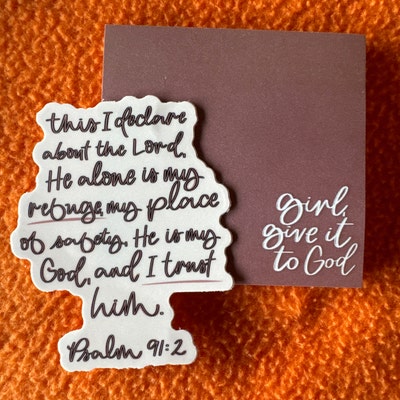 this I declare
about the Lord,
He alone is my
refuge, my place
of safety. He is my
God, and I trust
him.
Psalm 91:2
girl,
give it
to God